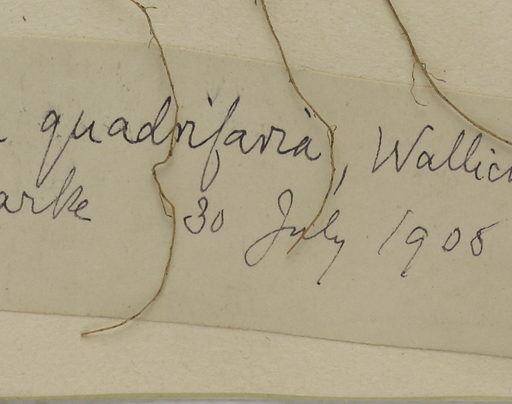 quadrifaria, Wallich
arke 30 July 1905